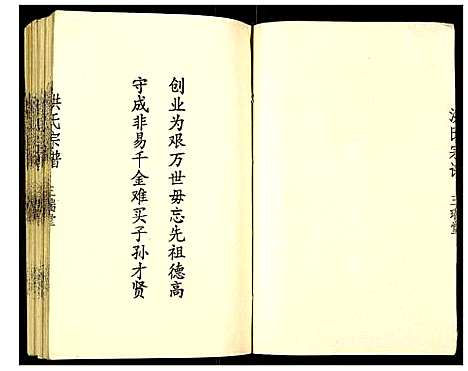 洪氏宗谱
三瑞堂
创业为艰万世毋忘先祖德高
守成非易千金难买子孙才贤
洪氏宗谱
三瑞堂